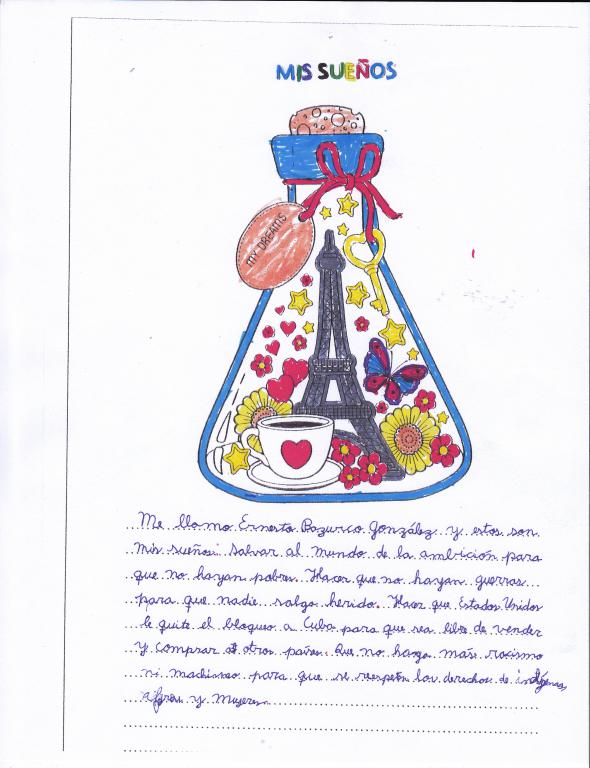 MIS SUEÑOS
MY DREAMS
Me llamo Ernesto Pazurco González y estos son
mis sueños: salvar al mundo de la ambición para
que no hayan pobres. Hacer que no hayan guerras
para que nadie salga herido. Hacer que Estados Unidos
le quite el bloqueo a Cuba para que sea libre de vender
y comprar a otros países. Que no haya más racismo
ni machismo para que se respeten los derechos de indígenas,
afros y mujeres.